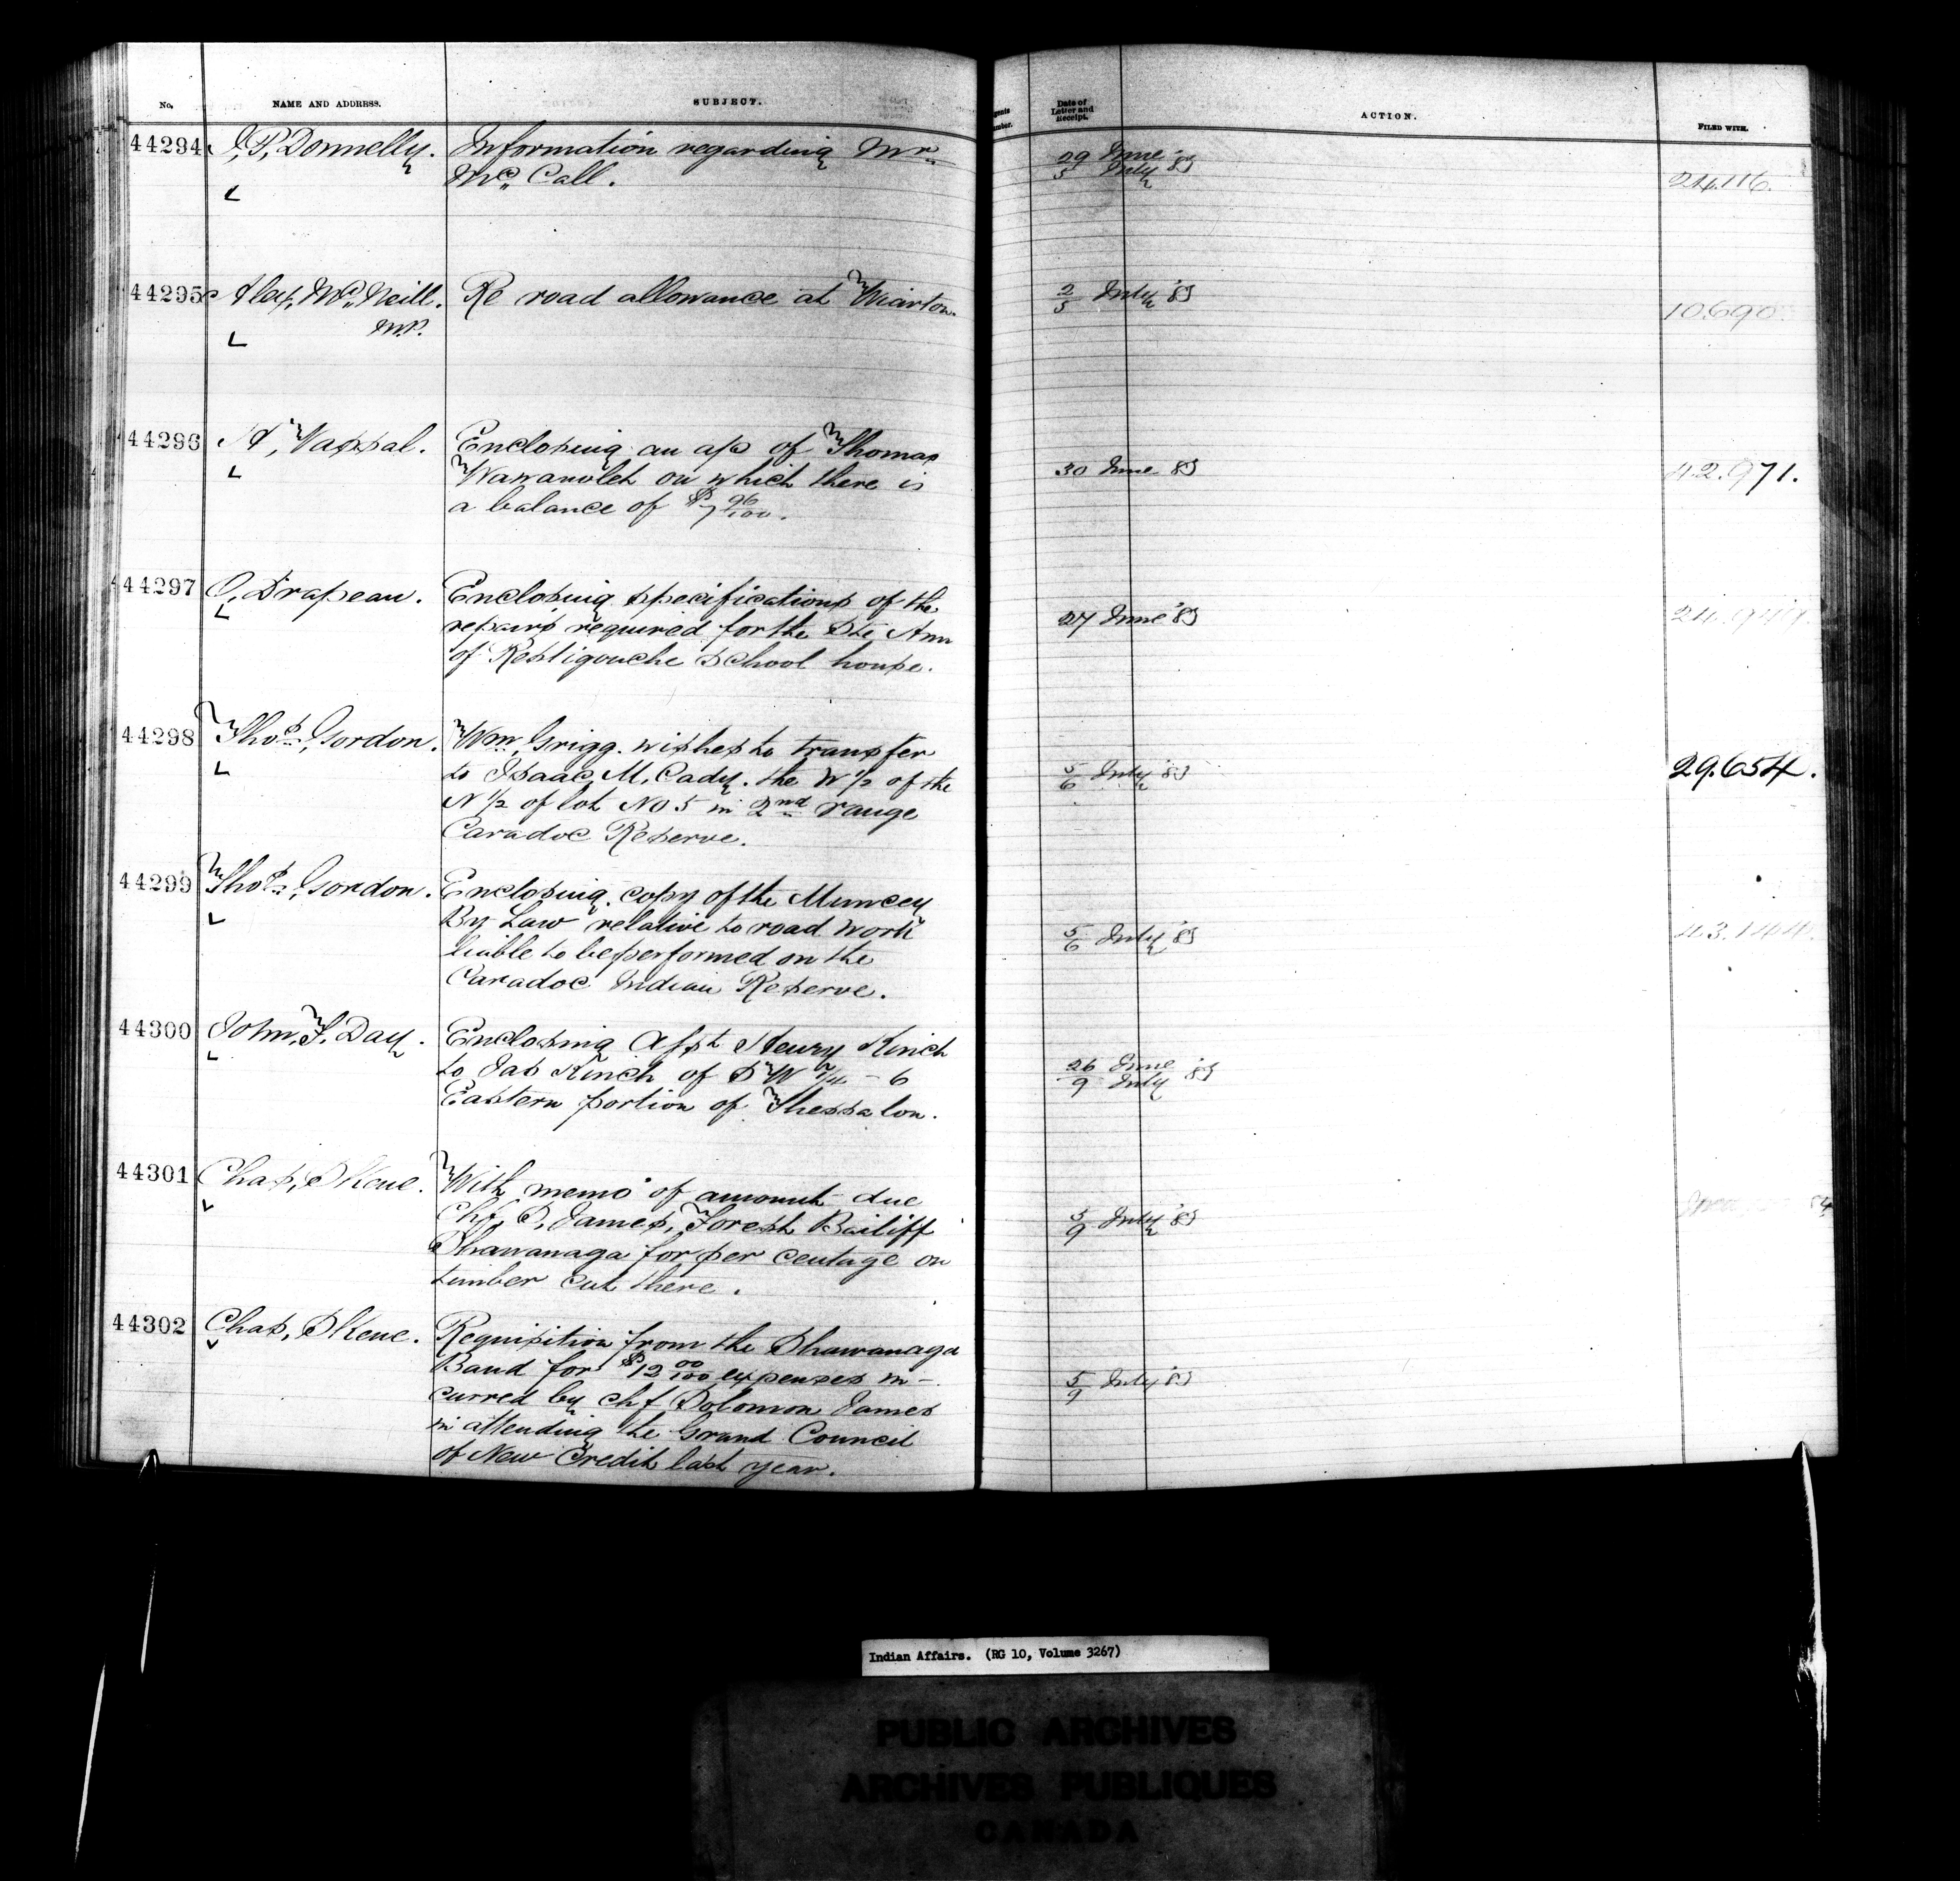 No. NAME AND ADDRESS. SUBJECT. Date of Letter and Receipt. ACTION. FILED WITH.
44294 J. P. Donnelly. Information regarding Mr
Mc Call. 29 June 5 July '83 24.116.
44295 Alex, Mc Neill. Re road allowance at Wiarton. 2/5 July '83 10.690
M.P.
44296 A, Vassal. Enclosing an a/c of Thomas
Wawanolet on which there is 30 June 83 42.971.
a balance of $7 96/100.
44297 O, Drapeau. Enclosing specifications of the
repairs required for the Ste Ann 27 June '83
of Restigouche School house.
44298 Thos Gordon. Wm, Grigg. wishes to transfer
to Isaac, M. Cady. the W 1/2 of the 5/6 July '83 29.654.
N 1/2 of lot No 5 in 2nd range
Caradoc Reserve.
44299 Thos Gordon. Enclosing. copy of the Muncey
By Law relative to road work 5/6 July '83 43.144.
liable to be performed on the
Caradoc Indian Reserve.
44300 John, F. Day. Enclosing Asst Henry Kinch
to Jas Kinch of S W 1/4 - 6 26 June 9 July '83
Eastern portion of Thessalon.
44301 Chas, Skene. With memo of amount due
Chf S, James, Forest Bailiff 5/9 July '83
Shawanaga for per centage on
timber cut there.
44302 Chas, Skene. Requisition from the Shawanaga
Band for $12 00/100 expenses in-
curred by chf Solomon James 5/9 July '83
in attending the Grand Council
of New Credit last year.
Indian Affairs. (RG 10, Volume 3267)
PUBLIC ARCHIVES
ARCHIVES PUBLIQUES
CANADA